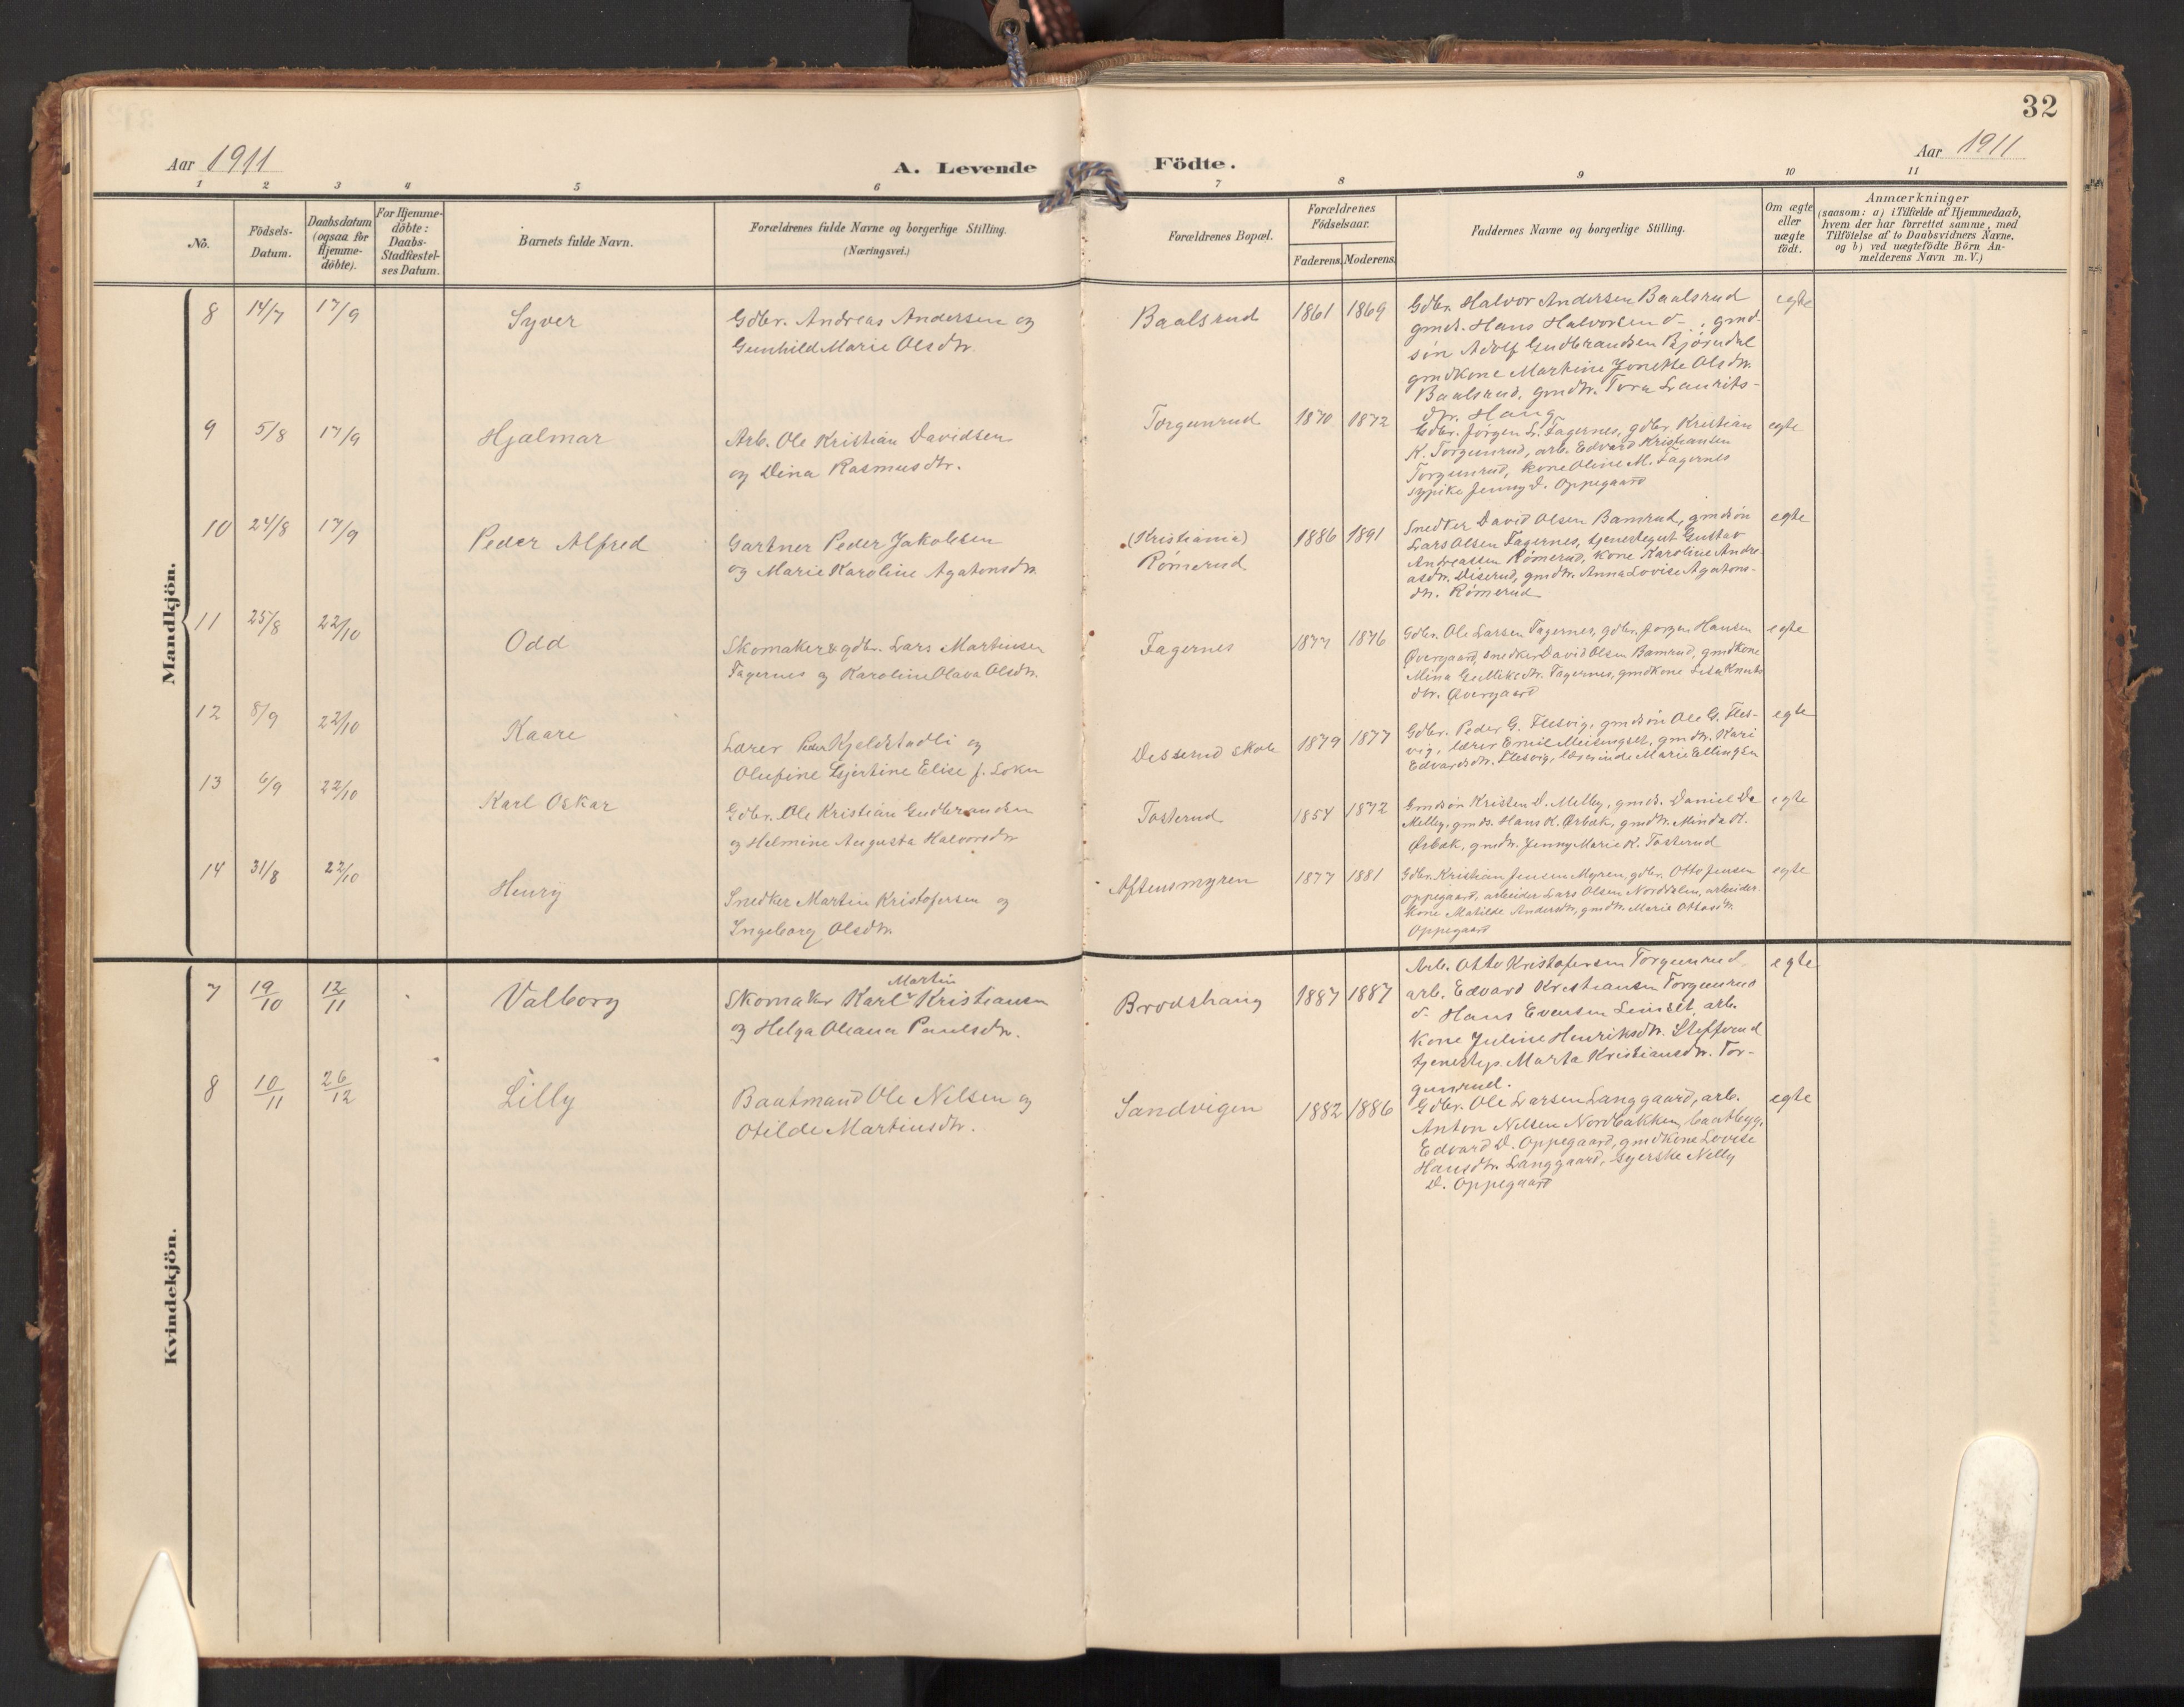 32
Aar 1911
A. Levende Födte.
Aar 1911
1 2 3 4 5 6 7 8 9 10 11
No.
Födsels-Datum.
Daabsdatum (ogsaa for Hjemme-döbte).
For Hjemme-döbte: Daabs-Stadfæstel-ses Datum.
Barnets fulde Navn.
Forældrenes fulde Navne og borgerlige Stilling.
(Næringsvei.)
Forældrenes Bopæl.
Forældrenes Födselsaar.
Faderens. Moderens.
Faddernes Navne og borgerlige Stilling.
Om ægte eller uægte födt.
Anmærkninger
(saasom: a) i Tilfælde af Hjemmedaab,
hvem der har forrettet samme, med
Tilföielse af to Daabsvidners Navne,
og b) ved uægtefödte Börn An-
melderens Navn m. V.)
Mandkjön.
8 14/7 17/9 Syver
Gdbr. Andreas Andersen og
Gunhild Marie Olsdtr.
Baalsrud 1861 1869
Gdbr. Halvor Andersen Baalsrud
gmds. Hans Halvorsen d- , gmd-
søn Adolf Gudbrandsen Bjørndal
gmdkone Martine Jonette Olsdtr.
Baalsrud, gmdtr. Tora Laurits-
dtr. Haug
egte
9 5/8 17/9 Hjalmar
Arb. Ole Kristian Davidsen
og Dina Rasmusdtr.
Torgunrud 1870 1872
Gdbr. Jørgen L. Fagernes, gdbr. Kristian
K. Torgunrud, arb. Edvard Kristiansen
Torgunrud, kone Oline M. Fagernes
sypike Jenny D. Oppegaard
egte
10 24/8 17/9 Peder Alfred
Gartner Peder Jakobsen
og Marie Karoline Agatonsdtr.
(Kristiania)
Rømerud
1886 1891
Snedker David Olsen Bamrud, gmdsøn
Lars Olsen Fagernes, tjenestegut Gustav
Andreassen Rømerud, kone Karoline Andre-
asdtr. Diserud, gmdtr. Anna Lovise Agatons-
dtr. Rømerud
egte
11 25/8 22/10 Odd
Skomaker & gdbr. Lars Martinsen
Fagernes og Karoline Olava Olsdtr.
Fagernes 1877 1876
Gdbr. Ole Larsen Fagernes, gdbr. Jørgen Hansen
Øvergaard, snedker David Olsen Bamrud, gmdkone
Mina Gulliksdtr. Fagernes, gmdkone Lisa Knuts
dtr. Øvergaard
egte
12 8/9 22/10 Kaare
Lærer Peder Kjeldstadli og
Olufine Gjertine Elise f. Loken
Desserud skole 1879 1877
Gdbr. Peder G. Flesvig, gmdsøn Ole G. Fles-
vig, lærer Emil Meisingset, gmdtr. Kari
Edvardsdtr. Flesvig, lærerinde Marie Ellingsen
egte
13 6/9 22/10 Karl Oskar
Gdbr. Ole Kristian Gudbrandsen
og Helmine Augusta Halvorsdtr
Tosterud 1854 1872
Gmdsøn Kristen D. Melby, gmds. Daniel D.
Melby, gmds. Hans K. Ørbæk, gmdtr. Minda K.
Ørbæk, gmdtr. Jenny Marie K. Tosterud
egte
14 31/8 22/10 Henry
Snedker Martin Kristofersen og
Ingeborg Olsdtr.
Aftensmyren 1877 1881
Gdbr. Kristian Jensen Myren, gdbr. Otto Jensen
Oppegaard, arbeider Lars Olsen Norddalen, arbeider-
kone Matilde Andersdtr, gmdtr. Marie Ottosdtr.
Oppegaard
egte
Kvindekjön.
7 19/10 12/11 Valborg
Martin
Skomaker Karl Kristiansen
og Helga Oleana Paulsdtr.
Brodshaug 1887 1887
Arb. Otto Kristofersen Torgunrud
arb. Edvard Kristiansen Torgunrud
d- Hans Evensen Linset, arb.
kone Juline Henriksdtr. Steffrud
tjenestep. Marta Kristiansdtr. Tor-
gunrud.
egte
8 10/11 26/12 Lilly
Baatmand Ole Nilsen og
Otilde Martinsdtr.
Sandvigen 1882 1886
Gdbr. Ole Larsen Langgaard, arb.
Anton Nilsen Nordbakken, baatbygg.
Edvard D. Oppegaard, gmdkone Lovise
Hansdtr. Langgaard, syerske Nelly
D. Oppegaard
egte